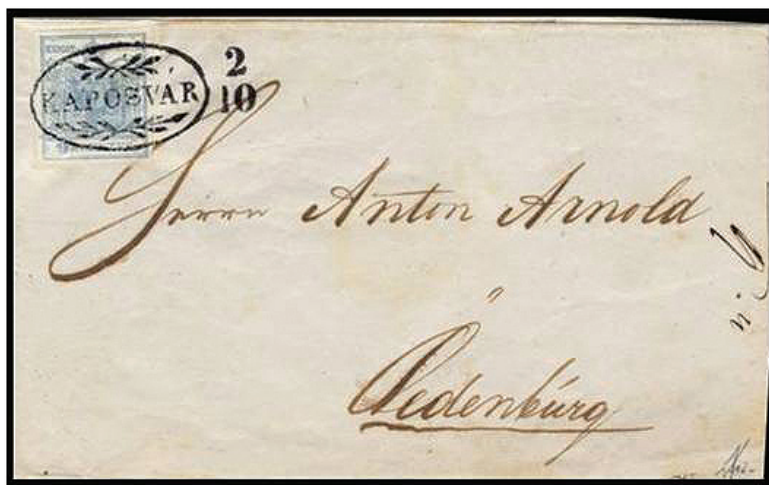 KAPOSVÁR
2
10
Herrn Anton Arnold
Oedenburg